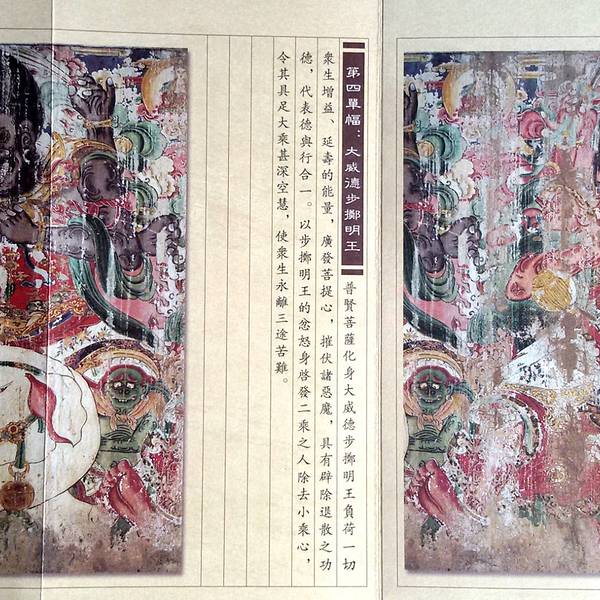 第四單幅：大威德步擲明王 普賢菩薩化身大威德步擲明王負荷一切
眾生增益、延壽的能量，廣發菩提心，摧伏諸惡魔，具有辟除退散之功
德，代表德與行合一。以步擲明王的忿怒身啓發二乘之人除去小乘心，
令其具足大乘甚深空慧，使眾生永離三途苦難。